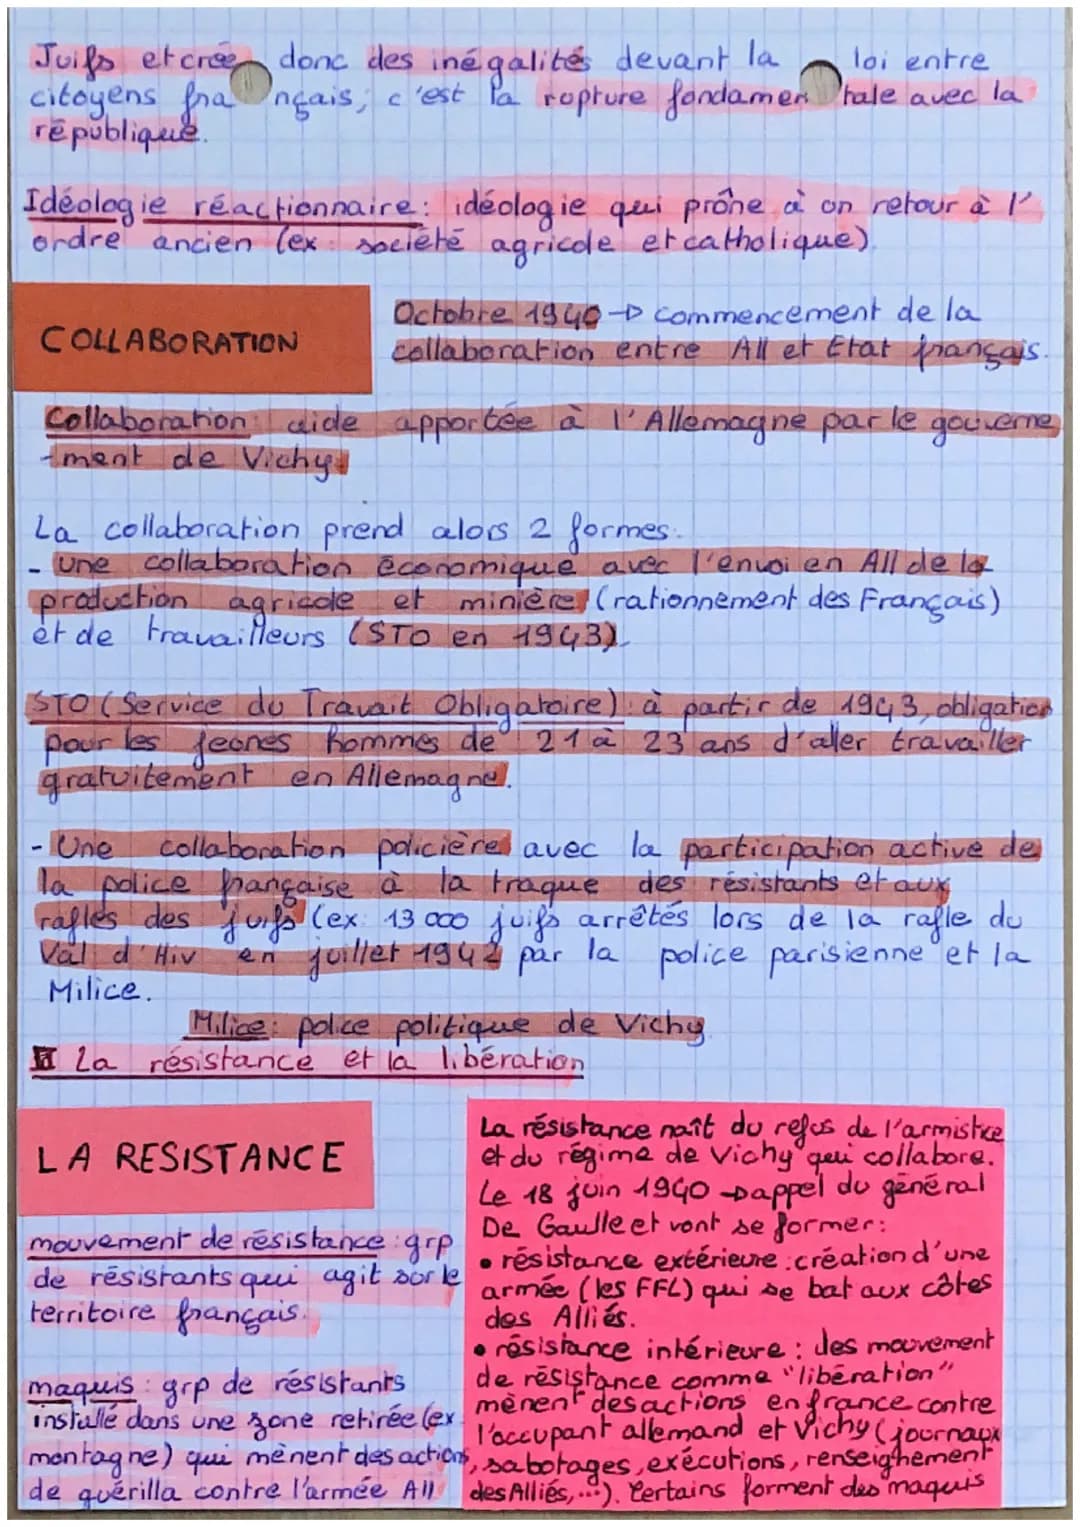 Juifs et crée donc des inégalités devant la loi entre
citoyens français; c'est la rupture fondamentale avec la
république.
Idéologie réactionnaire: idéologie qui prône à un retour à l'
ordre ancien (ex: société agricole et catholique).
COLLABORATION
Octobre 1940 → commencement de la
collaboration entre All et Etat français.
Collaboration: aide apportée à l'Allemagne par le gouverne
-ment de Vichy.
La collaboration prend alors 2 formes:
- une collaboration économique avec l'envoi en All de la
production agricole et minière (rationnement des Français)
et de travailleurs (STO en 1943).
STO (Service du Travait Obligatoire): à partir de 1943, obligation
pour les jeunes hommes de 21 à 23 ans d'aller travailler
gratuitement en Allemagne.
- Une collaboration policière avec la participation active de
la police française à la traque des résistants et aux
rafles des juifs (ex: 13 000 juifs arrêtés lors de la rafle du
Val d'Hiv en juillet 1942 par la police parisienne et la
Milice.
Milice: police politique de Vichy.
II La résistance et la libération
LA RESISTANCE
mouvement de résistance: grp
de résistants qui agit sur le
territoire français.
maquis: grp de résistants
installé dans une zone retirée (ex
montagne) qui mènent des actions
de guérilla contre l'armée All
La résistance naît du refus de l'armistice
et du régime de Vichy qui collabore.
Le 18 juin 1940 → appel du général
De Gaulle et vont se former:
• résistance extérieure: création d'une
armée (les FFL) qui se bat aux côtés
des Alliés.
• résistance intérieure: des mouvement
de résistance comme "libération"
mènent des actions en france contre
l'occupant allemand et Vichy (journaux
, sabotages, exécutions, renseignement
des Alliés,...). Certains forment des maquis